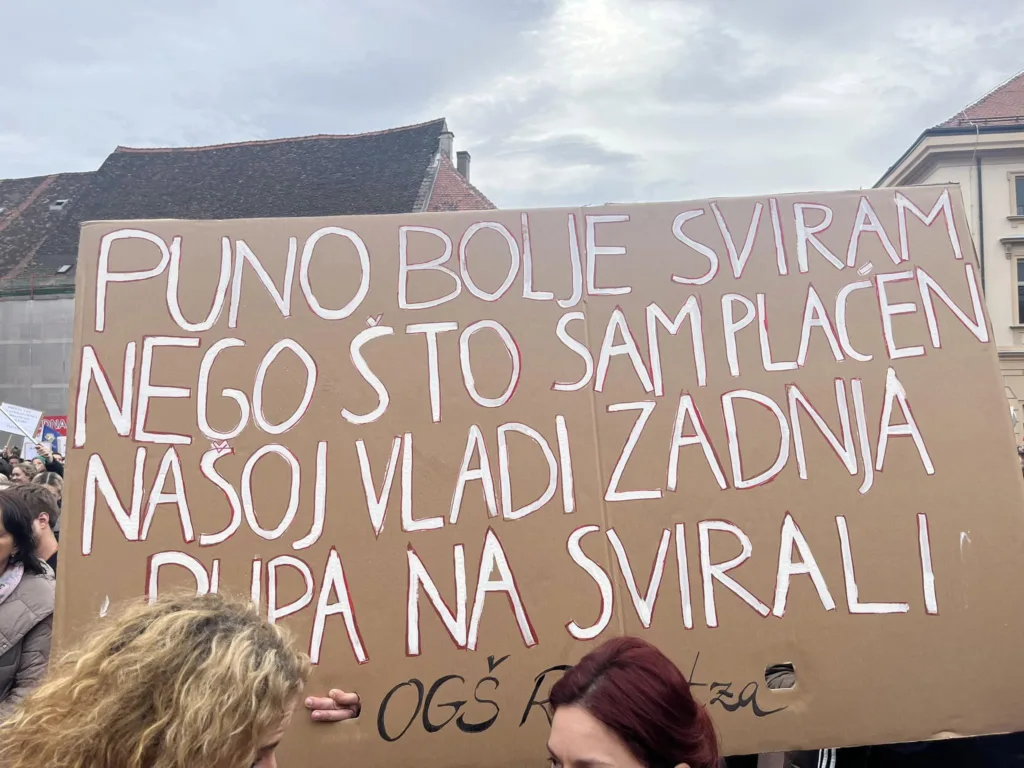 PUNO BOLJE SVIRAM
NEGO ŠTO SAM PLAĆEN
NAŠOJ VLADI ZADNJA
RUPA NA SVIRALI
OGŠ